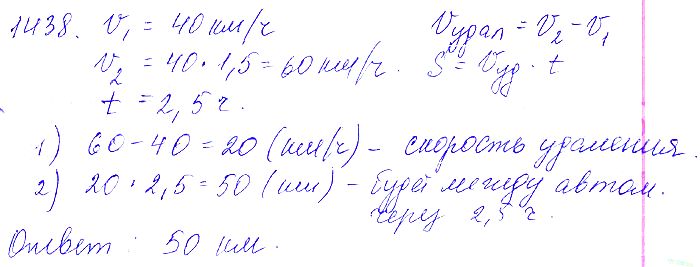 1438. V₁ = 40 км/ч Vудал = V₂ - V₁
V₂ = 40 · 1,5 = 60 км/ч. S = Vуд · t
t = 2,5 ч.
1) 60 - 40 = 20 (км/ч) - скорость удаления.
2) 20 · 2,5 = 50 (км) - будет между автом.
через 2,5 ч.
Ответ: 50 км.